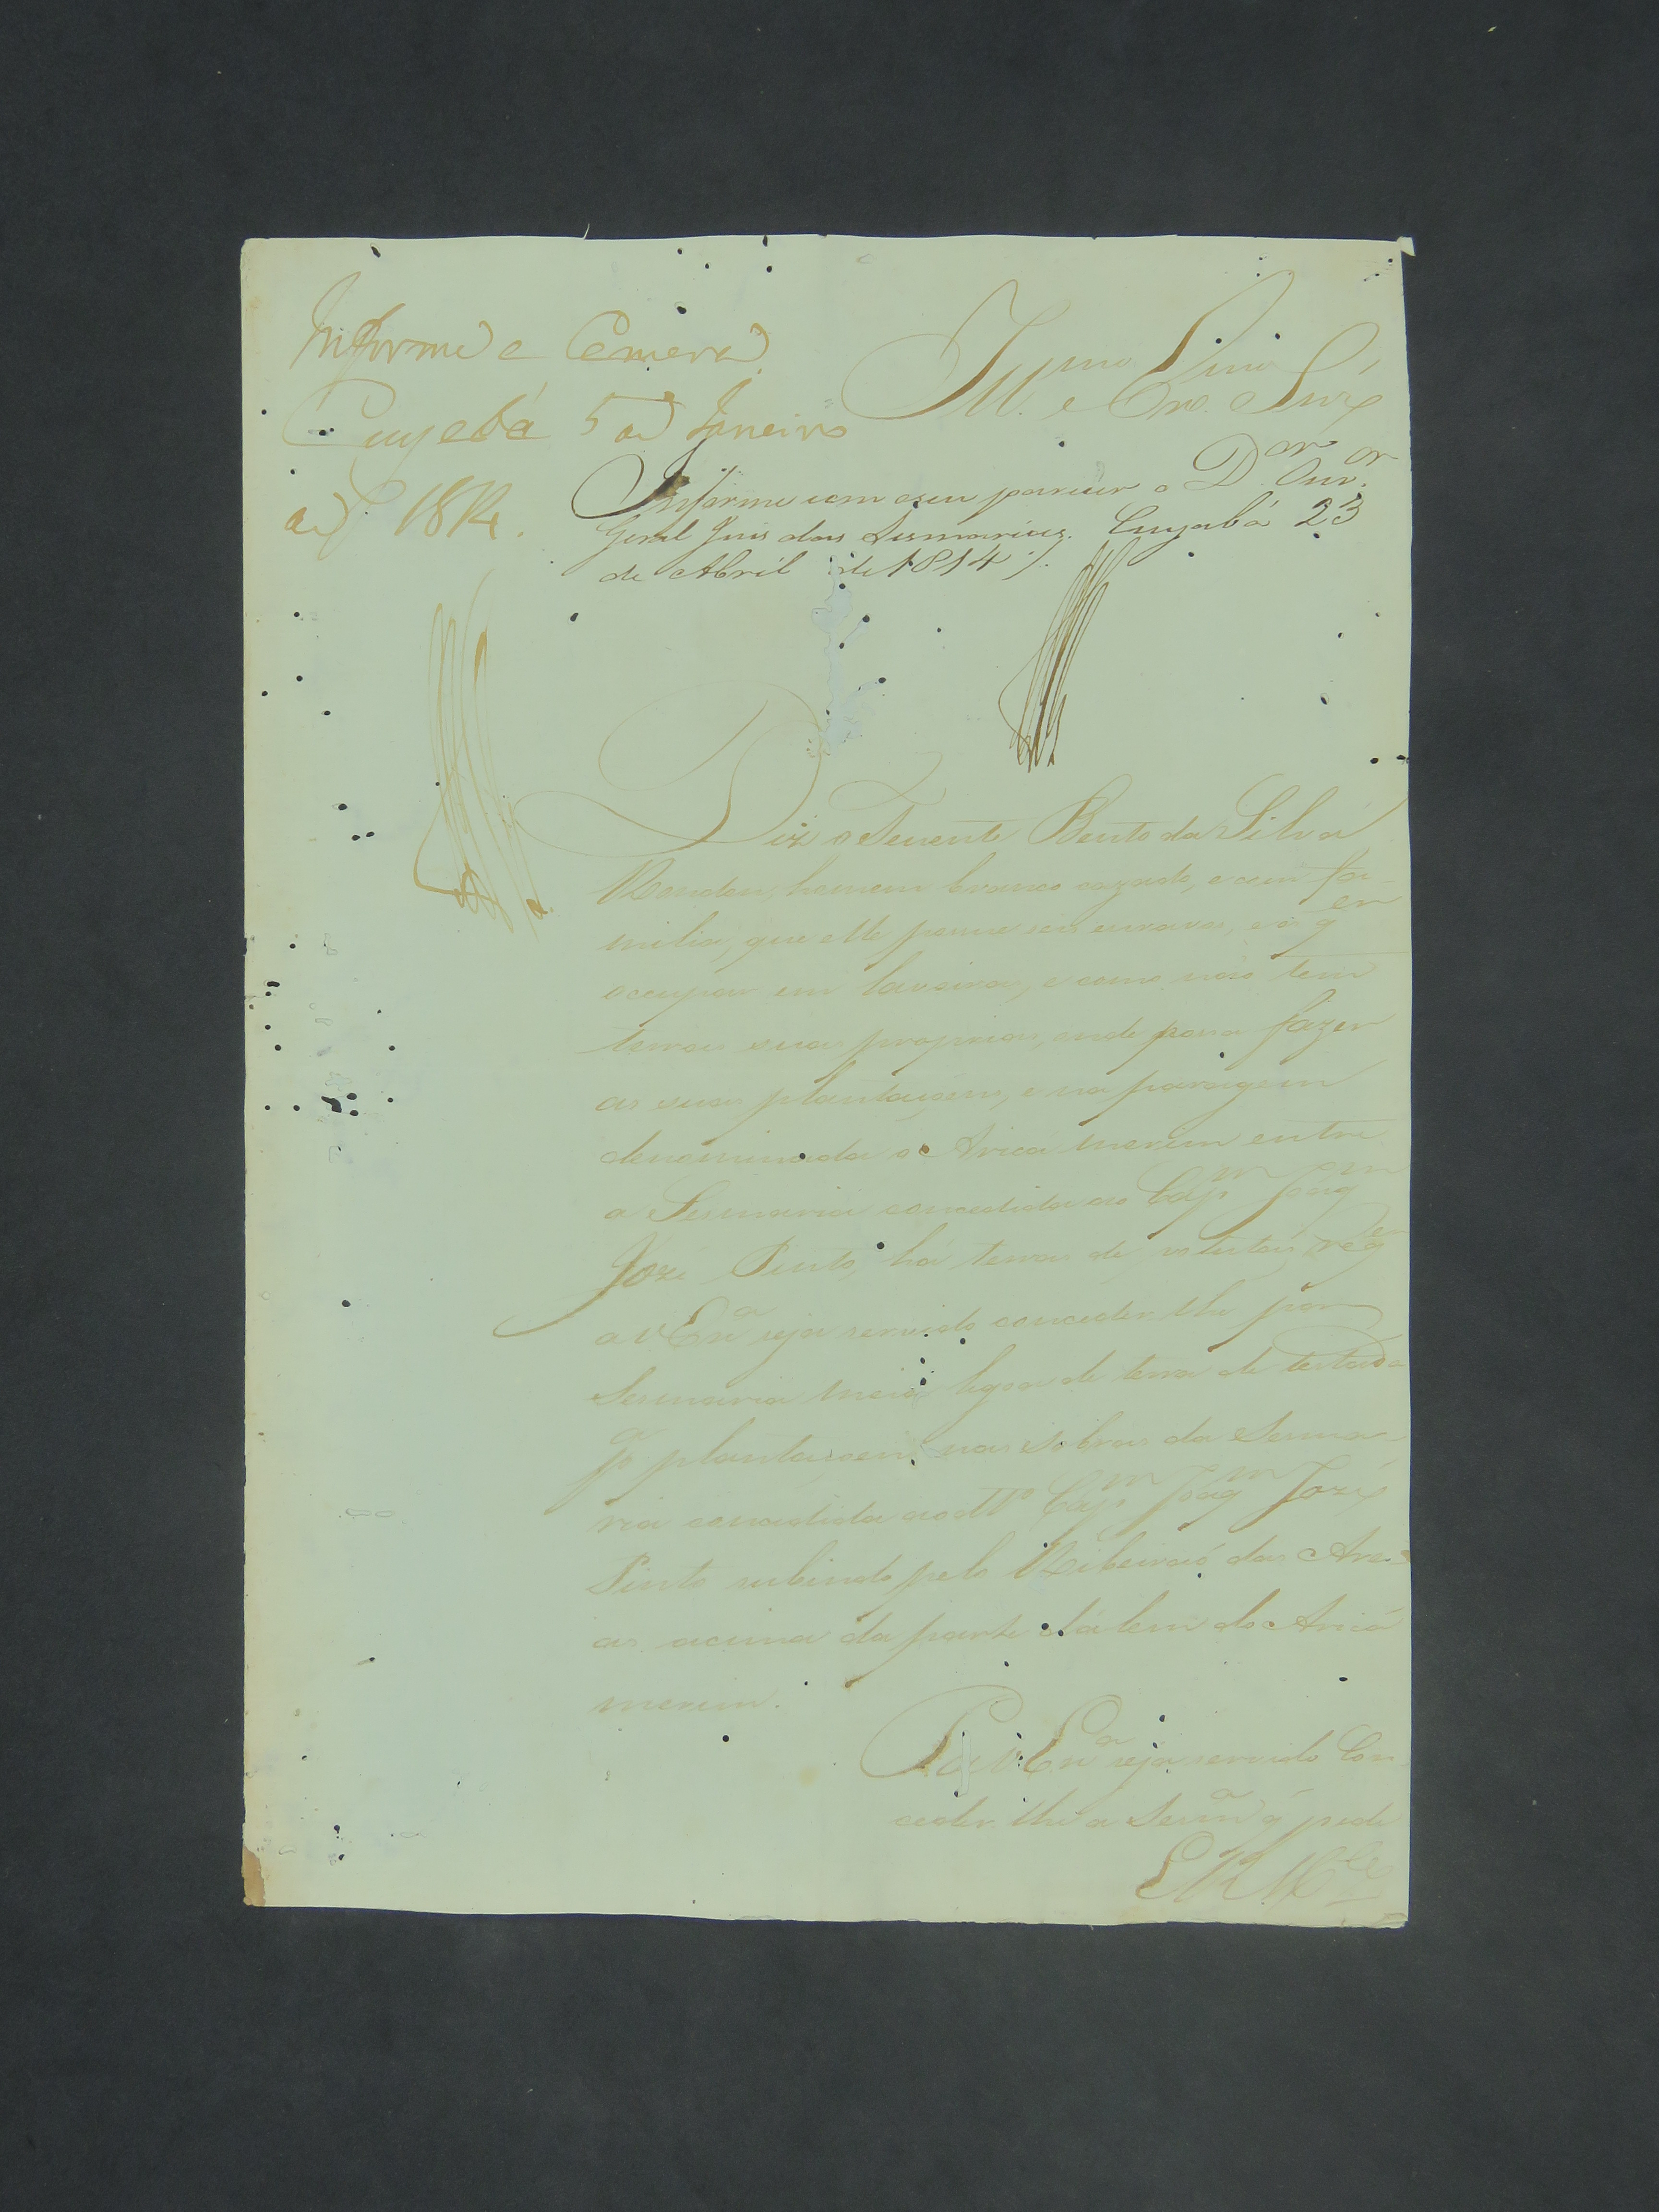 Informe a Camera
Cuyabá 5 de Janeiro
de 1814.
Ill.mo e Exmo. Snr.
Informe com o seu parecer o D.or Ouv.or
Geral Juis das Sesmarias. Cuyabá 23
de Abril de 1814 /.
Diz o Tenente Bento da Silva
Rondon, homem branco cazado, e com fa-
milia, que elle possue seus escravos, e os q
occupar em lavoira, e como naõ tem
terras suas proprias, onde possa fazer
as suas plantaçoens, e na paragem
denominada o Aricá merim entre
a Sesmaria concedida ao Cap.m Joaq.m
Jozé Pinto, há terras de
a V Ex.a seja servido conceder lhe por
Sesmaria meia legoa de terra de testada
p.a plantaçoens, nas sobras da Sesma-
ria concedida ao d.to Cap.m Joaq.m Jozé
Pinto subindo pelo Ribeiraõ das Are-
as acima da parte dálem do Aricá
merim.
P. a V. Ex.a seja servido Con
ceder lhe a Sesm.a q pede
E R M.ce